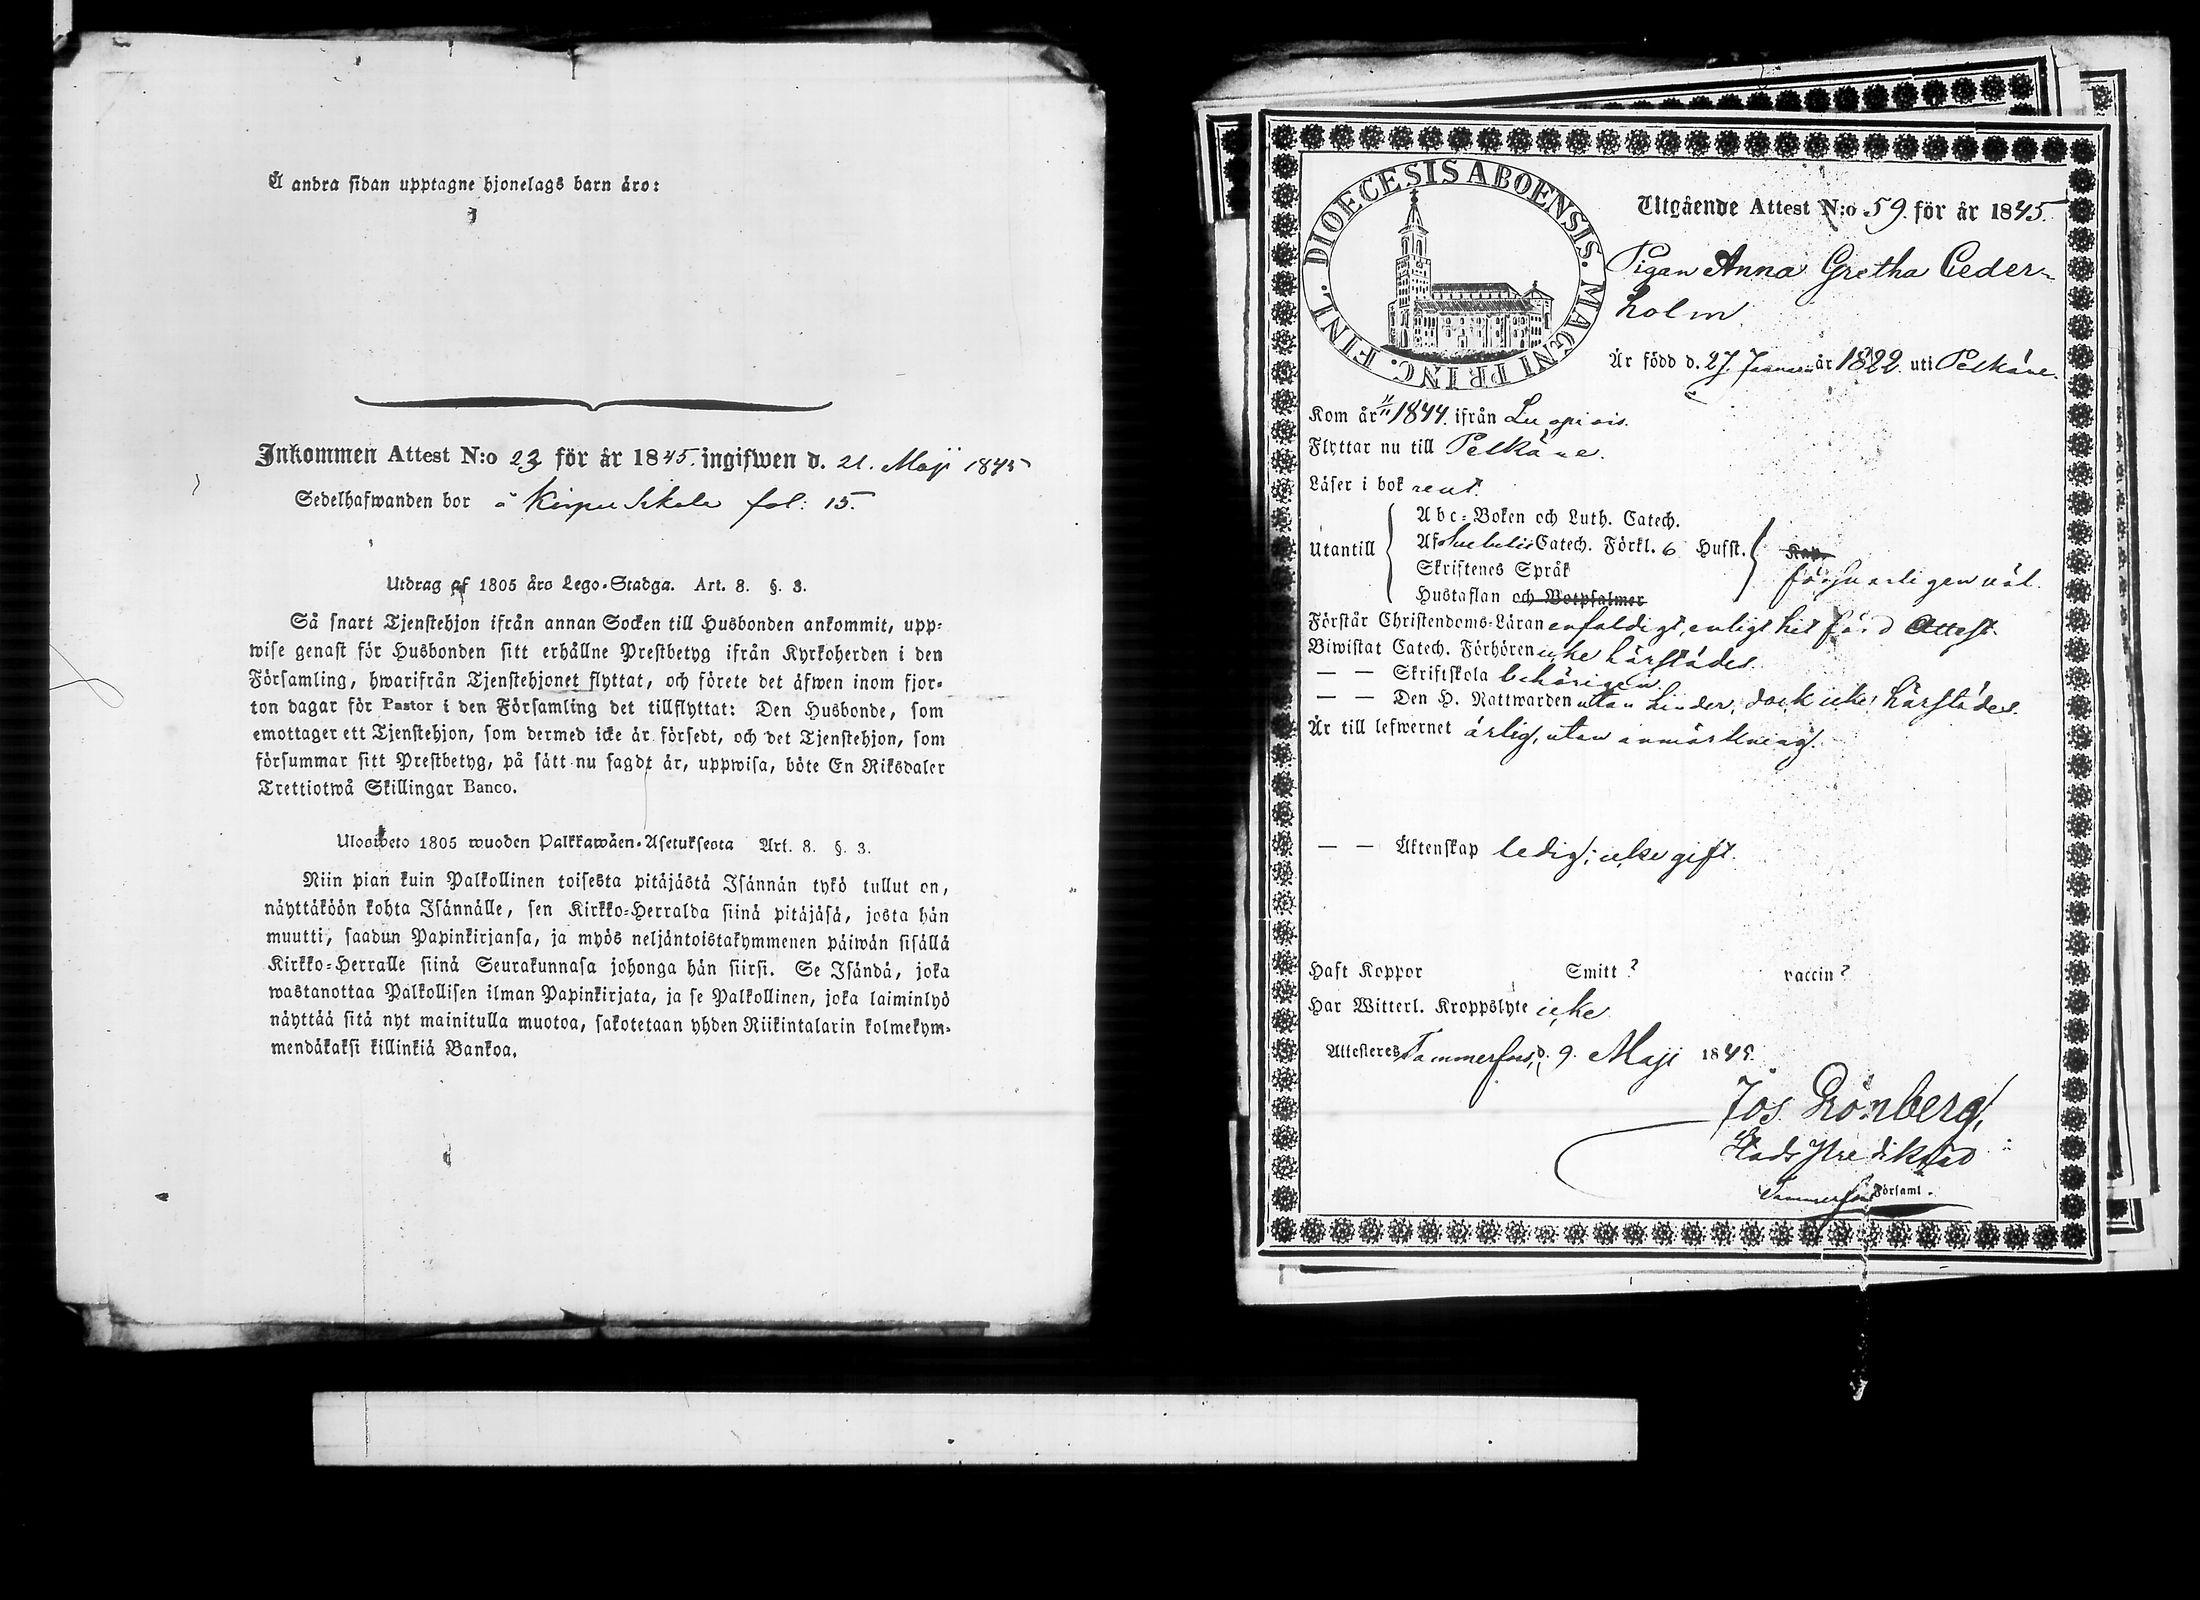 Å andra sidan upptagne hjonelags barn äro:
Inkommen Attest N:o 23 för år 1845. ingifwen d. 21. Maji 1845
Sedelhafwanden bor å Kirpu Sikala fol: 15.
Utdrag af 1805 års Lego-Stadga. Art. 8. §. 3.
Så snart Tjenstehjon ifrån annan Socken till Husbonden ankommit, upp-
wise genast för Husbonden sitt erhållne Prestbetyg ifrån Kyrkoherden i den
Församling, hwarifrån Tjenstehjonet flyttat, och förete det äfwen inom fjor-
ton dagar för Pastor i den Församling det tillflyttat: Den Husbonde, som
emottager ett Tjenstehjon, som dermed icke är försedt, och det Tjenstehjon, som
försummar sitt Prestbetyg, på sätt nu sagdt är, uppwisa, böte En Riksdaler
Trettiotwå Skillingar Banco.
Ulosweto 1805 wuoden Palkkawäen-Asetuksesta Art. 8. §. 3.
Niin pian kuin Palkollinen toisesta pitäjästä Isännän tykö tullut on,
näyttäköön kohta Isännälle, sen Kirkko-Herralda siinä pitäjäsä, josta hän
muutti, saadun Papinkirjansa, ja myös neljäntoistakymmenen päiwän sisällä
Kirkko-Herralle siinä Seurakunnasa johonga hän siirsi. Se Isändä, joka
wastanottaa Palkollisen ilman Papinkirjata, ja se Palkollinen, joka laiminlyö
näyttää sitä nyt mainitulla muotoa, sakotetaan yhden Riikintalarin kolmekym-
mendäkaksi killinkiä Bankoa.
DIOECESIS ABOENSIS. MAGNI PRINC. FINL.
Utgående Attest N:o 59. för år 1845.
Pigan Anna Gretha Ceder-
holm
Är född d. 27. Januari år 1822. uti Pelkäne.
Kom år 1844. ifrån Luopiois.
Flyttar nu till Pelkäne.
Läser i bok rent.
Utantill
Abc-Boken och Luth. Catech.
Af Svebelii Catech. Förkl. 6 Hufst. Kap.
Skriftenes Språk försvarligen väl.
Hustaflan och Botpsalmer
Förstår Christendoms-Läran enfaldigt, enligt hit förd Attest.
Biwistat Catech. Förhören icke härstädes.
— — Skriftskola behörigen.
— — Den H. Nattwarden utan hinder, dock icke härstädes.
Är till lefwernet ärlig, utan anmärkning.
— — Äktenskap ledig; icke gift.
Haft Koppor Smitt? vaccin?
Har Witterl. Kroppslyte icke
Attesteres Tammerfors, d. 9. Maji 1845.
Jos Grönberg,
Stads Predikant
Tammerfors Församl.